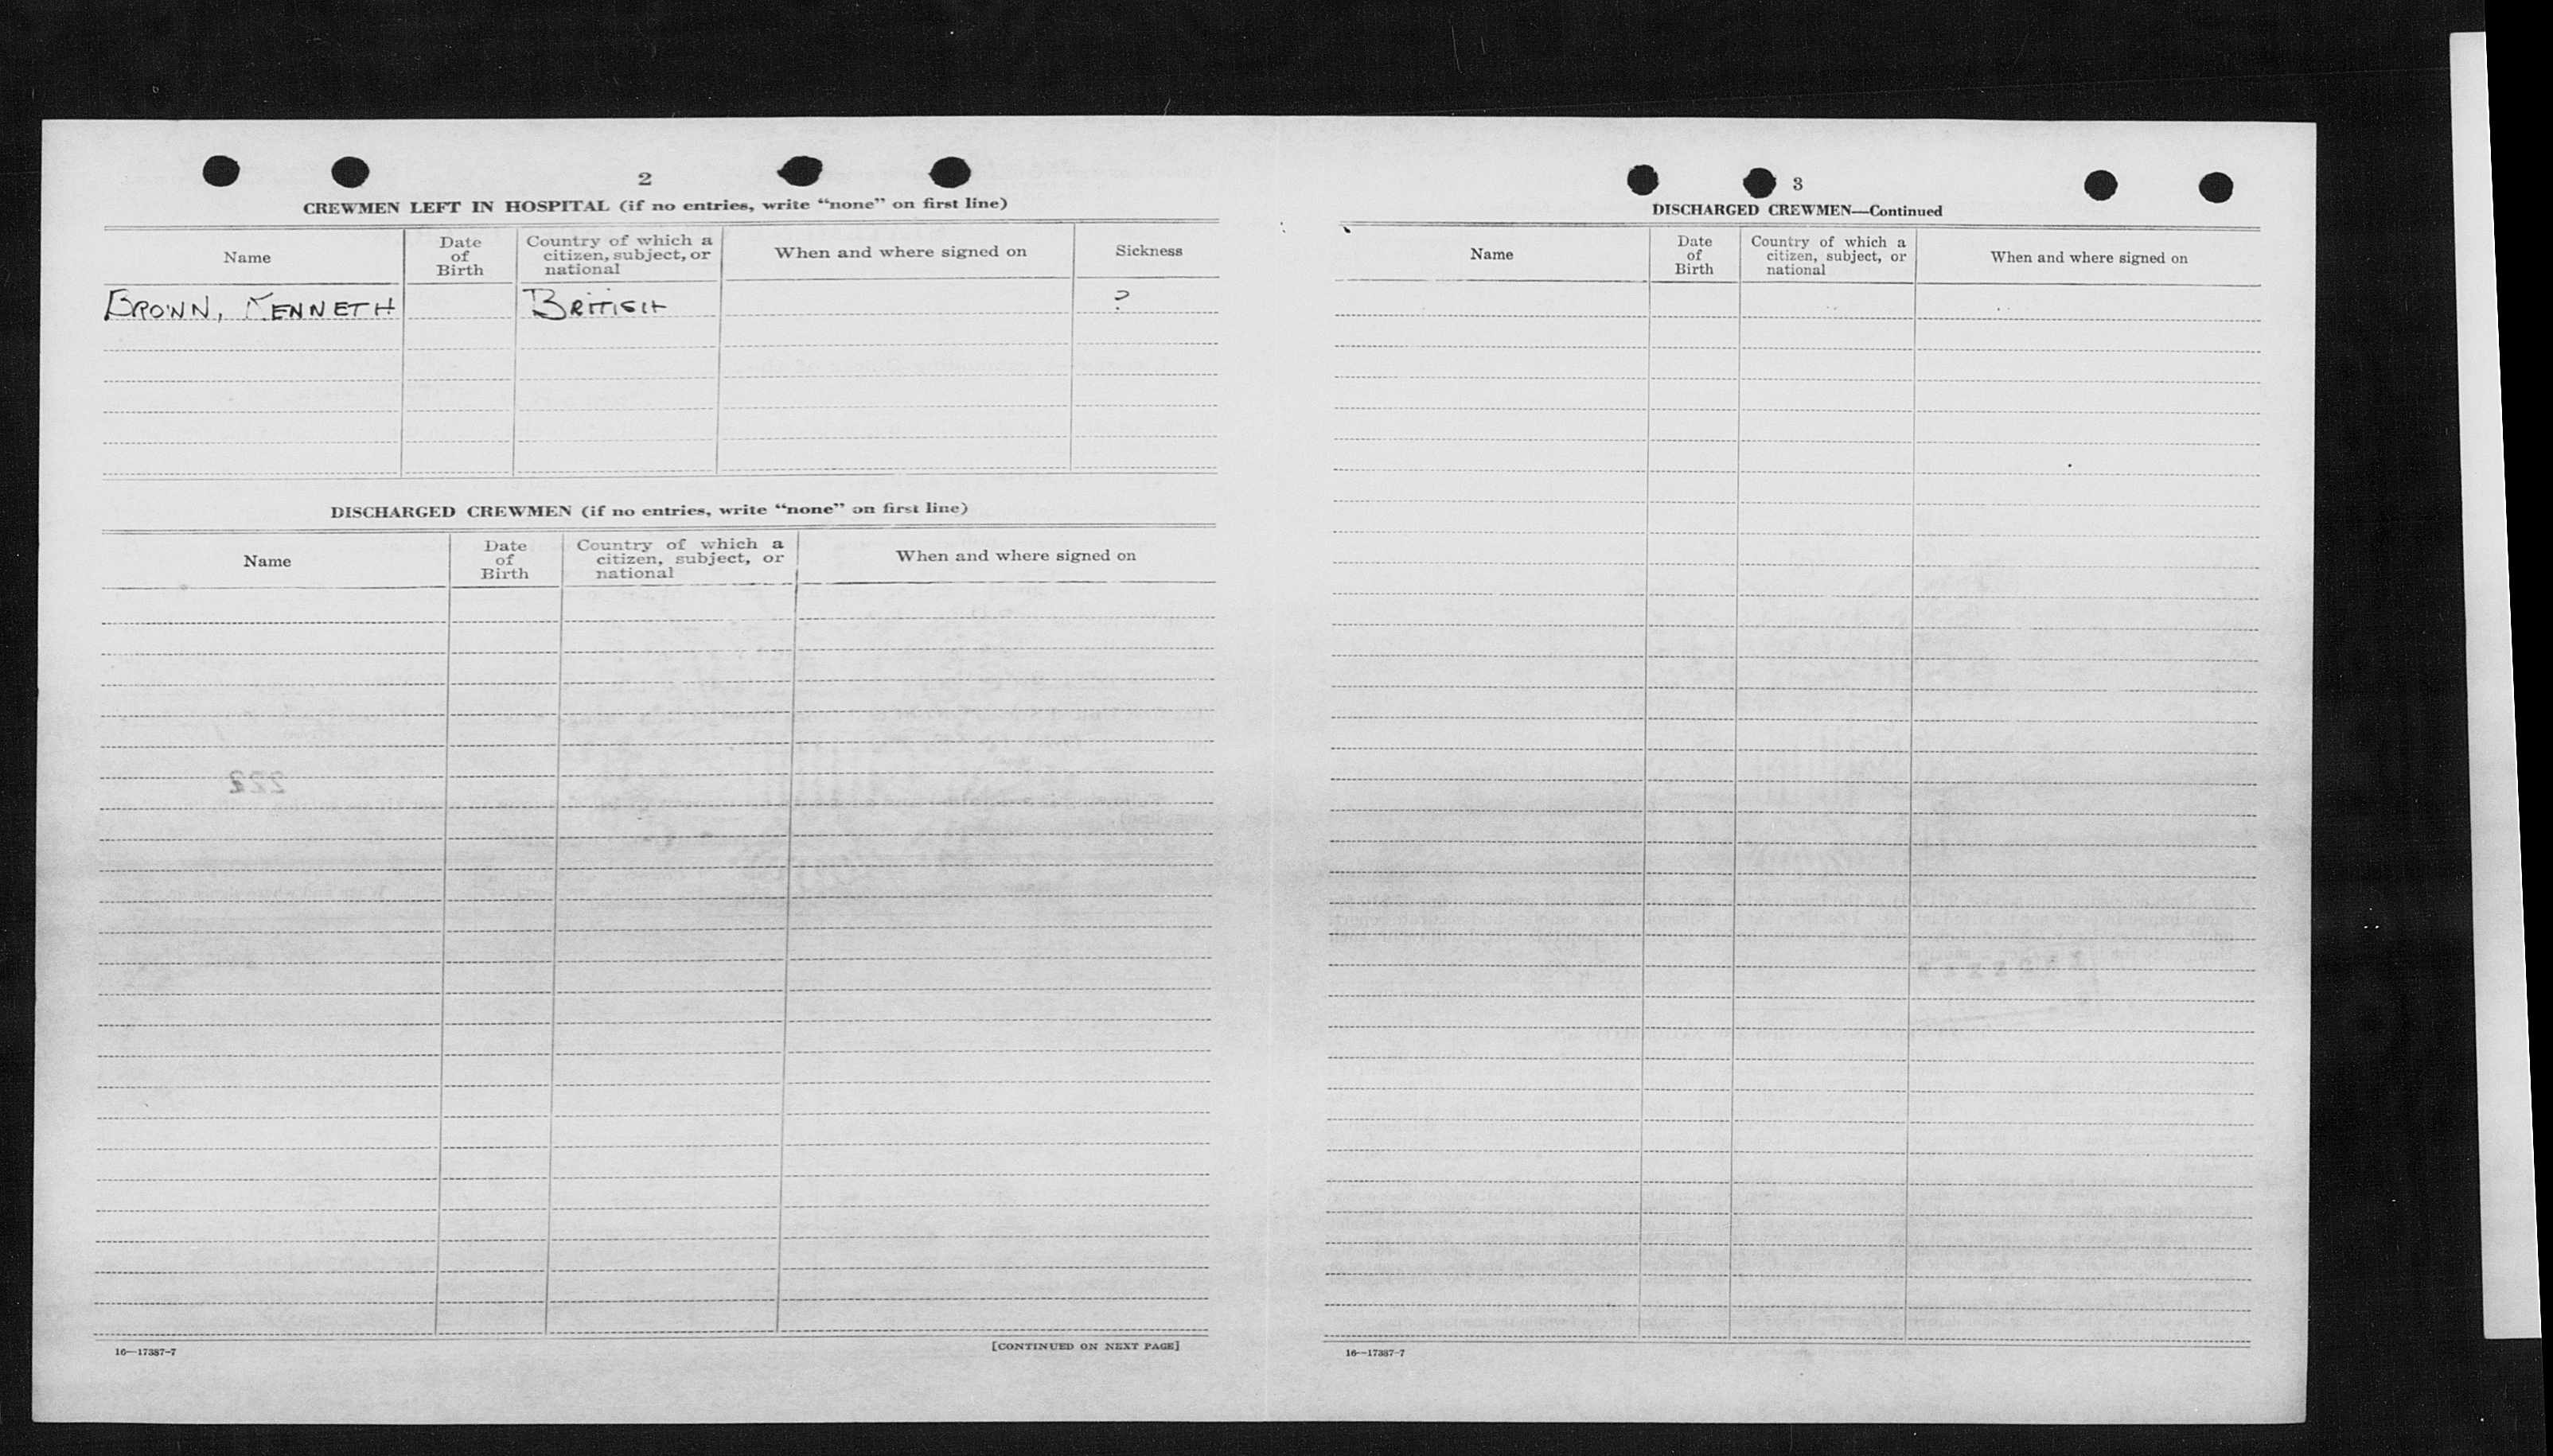 2
CREWMEN LEFT IN HOSPITAL (if no entries, write “none” on first line)
Name
Date of Birth
Country of which a citizen, subject, or national
When and where signed on
Sickness
BROWN, KENNETH
BRITISH
?
DISCHARGED CREWMEN (if no entries, write “none” on first line)
Name
Date of Birth
Country of which a citizen, subject, or national
When and where signed on
16—17387-7
[CONTINUED ON NEXT PAGE]
3
DISCHARGED CREWMEN—Continued
Name
Date of Birth
Country of which a citizen, subject, or national
When and where signed on
16—17387-7